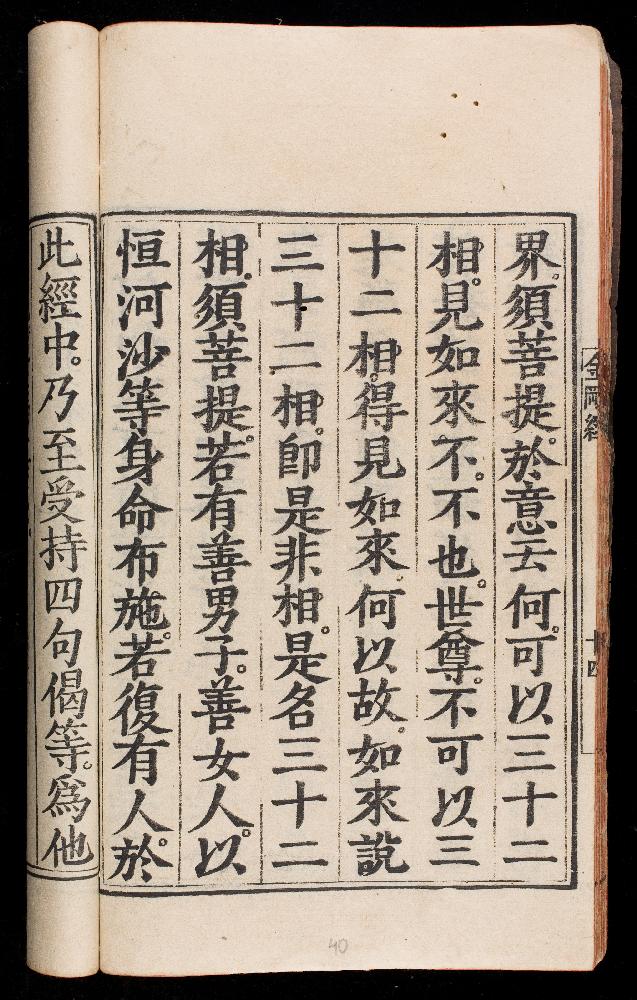 界。須菩提。於意云何。可以三十二
相。見如來不。不也。世尊。不可以三
十二相。得見如來。何以故。如來說
三十二相。卽是非相。是名三十二
相。須菩提。若有善男子。善女人。以
恒河沙等身命布施。若復有人。於
此經中。乃至受持四句偈等。爲他
金剛經
十四
40